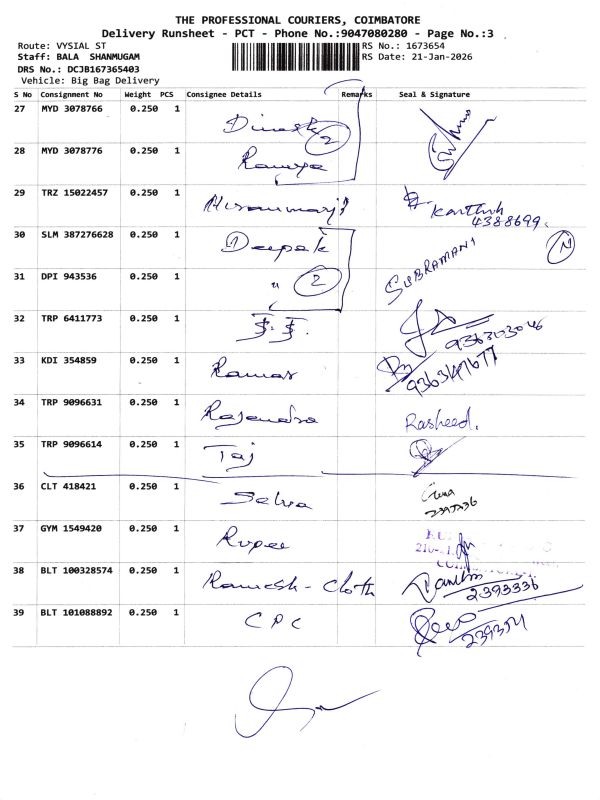 THE PROFESSIONAL COURIERS, COIMBATORE
Delivery Runsheet - PCT - Phone No.:9047080280 - Page No.:3
Route: VYSIAL ST
RS No.: 1673654
Staff: BALA SHANMUGAM
RS Date: 21-Jan-2026
DRS No.: DCJB167365403
Vehicle: Big Bag Delivery
S No Consignment No Weight PCS Consignee Details Remarks Seal & Signature
27 MYD 3078766 0.250 1 Dinesh 2
28 MYD 3078776 0.250 1 Ramya
29 TRZ 15022457 0.250 1 Karthik 4388699
30 SLM 387276628 0.250 1 Deepak SUBRAMANI N
31 DPI 943536 0.250 1 " 2
32 TRP 6411773 0.250 1 9363203046
33 KDI 354859 0.250 1 Raman
34 TRP 9096631 0.250 1 Rajendra Rasheed.
35 TRP 9096614 0.250 1 Taj
36 CLT 418421 0.250 1 Selva
37 GYM 1549420 0.250 1 Rupee
38 BLT 100328574 0.250 1 Ramesh - Cloth 2393336
39 BLT 101088892 0.250 1 CPC